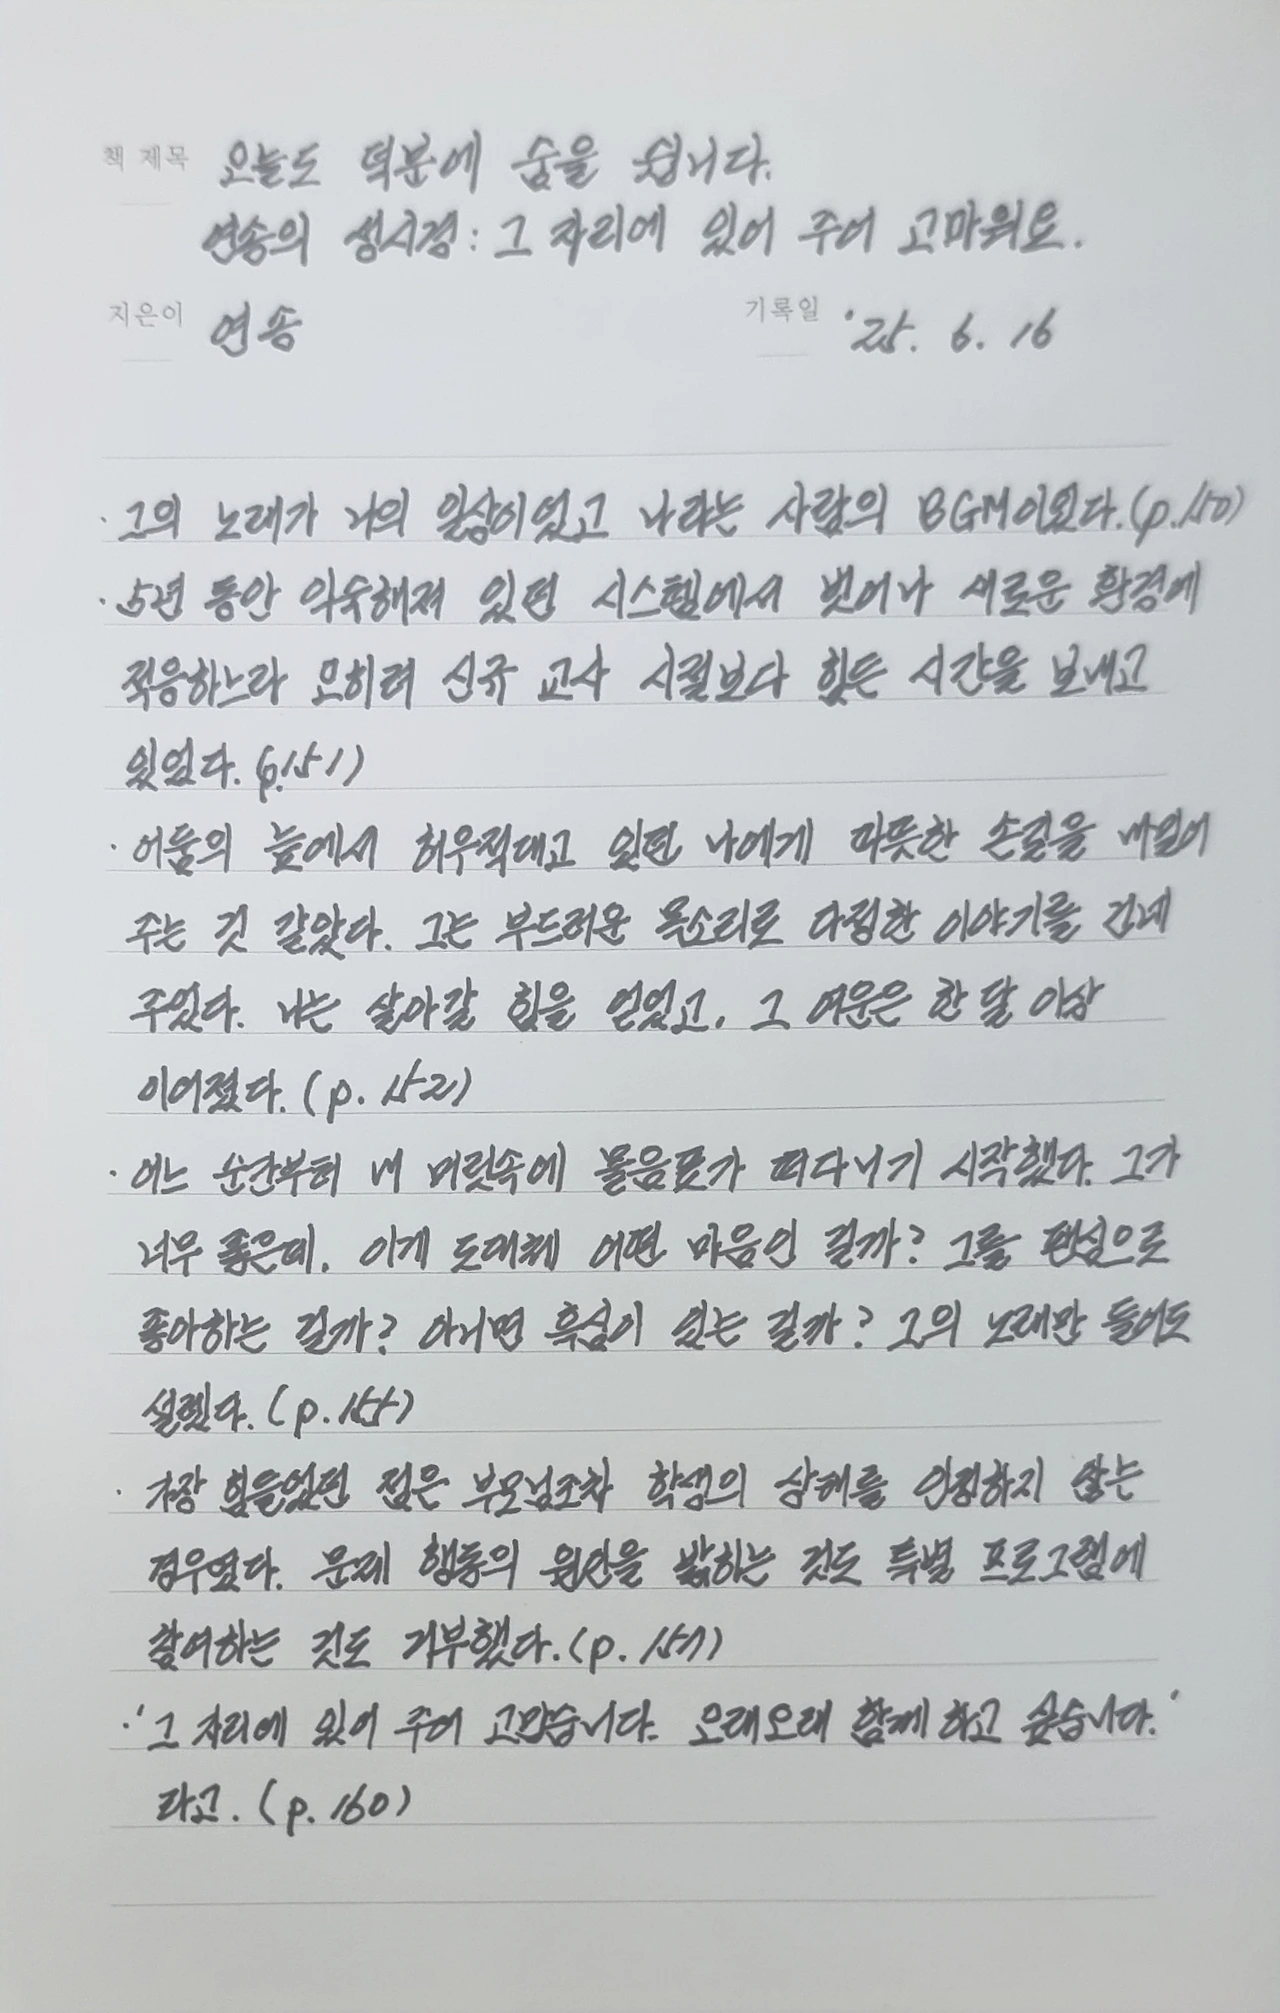 책 제목 오늘도 덕분에 숨을 쉽니다.
연송의 성시경: 그 자리에 있어 주어 고마워요.
지은이 연송 기록일 '25. 6. 16
· 그의 노래가 나의 일상이었고 나라는 사람의 BGM이었다.(p.150)
· 5년 동안 익숙해져 있던 시스템에서 벗어나 새로운 환경에
적응하느라 오히려 신규 교사 시절보다 힘든 시간을 보내고
있었다. (p.151)
· 어둠의 늪에서 허우적대고 있던 나에게 따뜻한 손길을 내밀어
주는 것 같았다. 그는 부드러운 목소리로 다정한 이야기를 건네
주었다. 나는 살아갈 힘을 얻었고, 그 여운은 한 달 이상
이어졌다. (p. 152)
· 어느 순간부터 내 머릿속에 물음표가 떠다니기 시작했다. 그가
너무 좋은데, 이게 도대체 어떤 마음인 걸까? 그를 팬심으로
좋아하는 걸까? 아니면 흑심이 있는 걸까? 그의 노래만 들어도
설렜다. (p.155)
· 가장 힘들었던 점은 부모님조차 학생의 상태를 인정하지 않는
경우였다. 문제 행동의 원인을 밝히는 것도 특별 프로그램에
참여하는 것도 거부했다. (p. 157)
· '그 자리에 있어 주어 고맙습니다. 오래오래 함께 하고 싶습니다.'
라고. (p. 160)